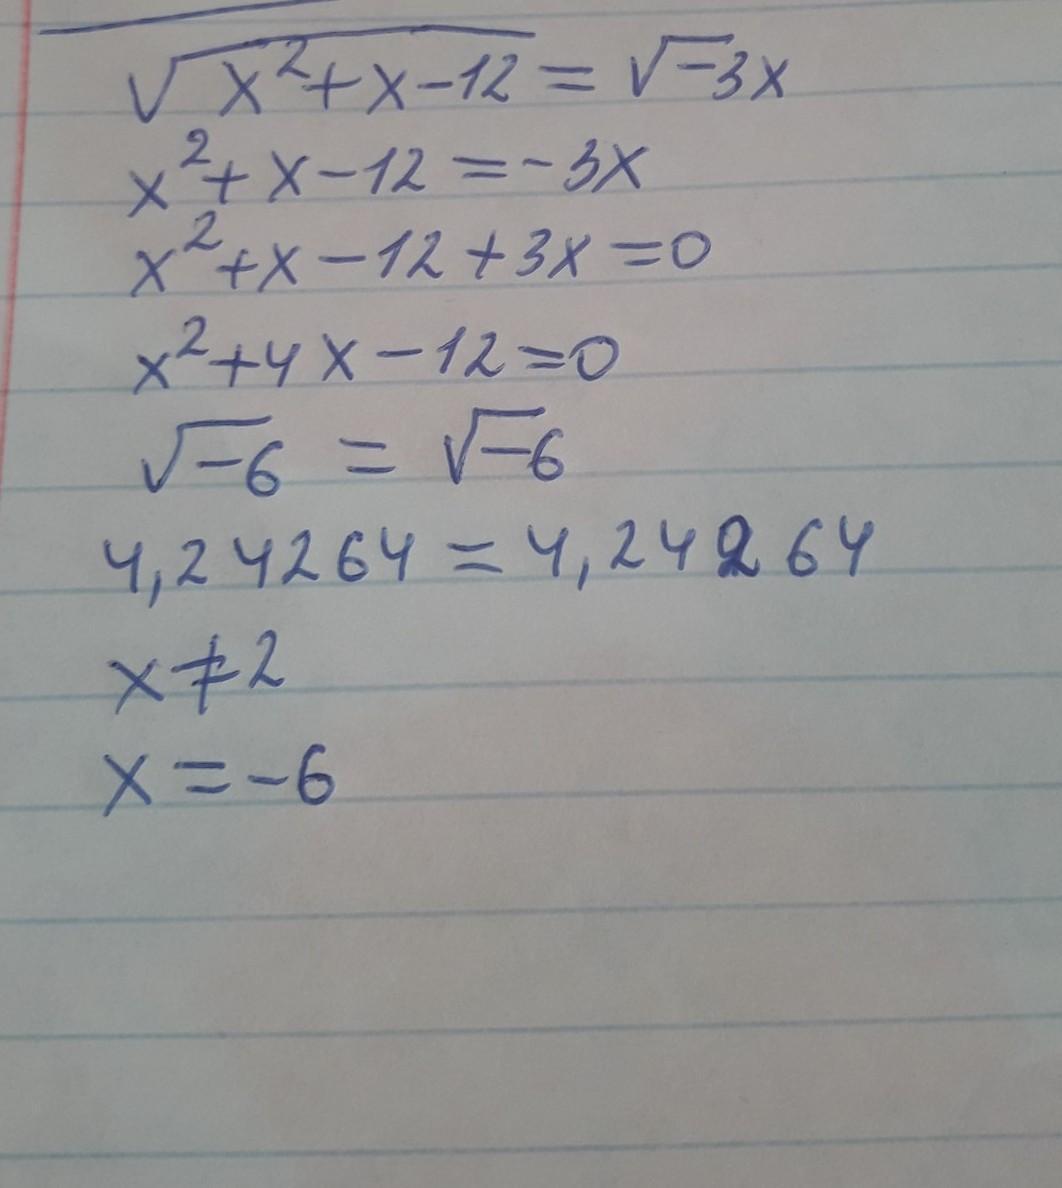 √x²+x-12 = √-3x
x²+x-12=-3x
x²+x-12+3x=0
x²+4x-12=0
√-6 = √-6
4,24264=4,24264
x≠2
x=-6